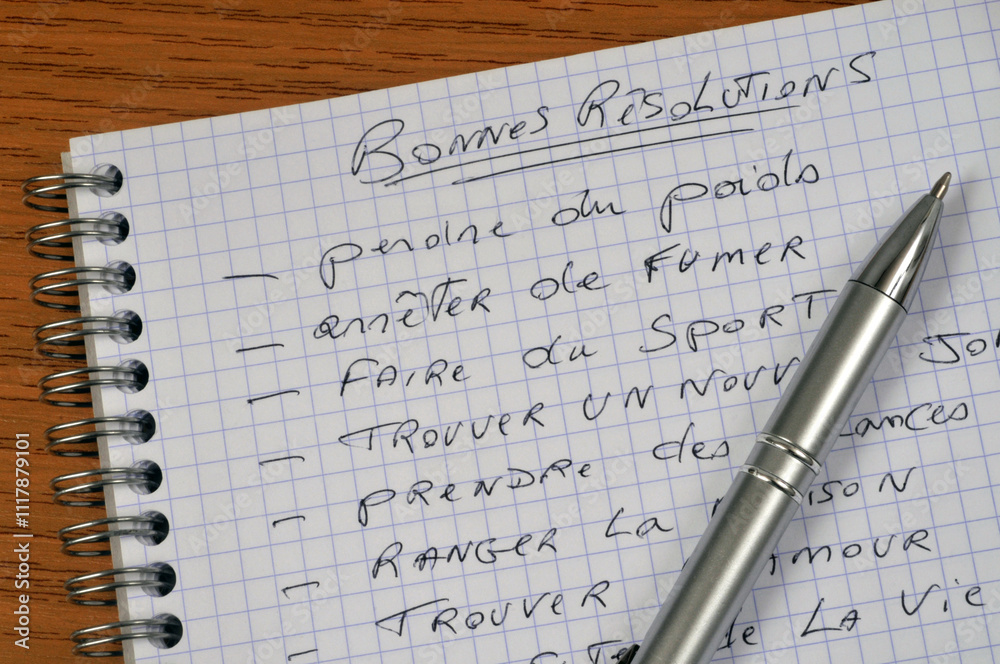 BONNES RÉSOLUTIONS
— perdre du poids
— arrêter de FUMER
— FAIRE du SPORT
— TROUVER UN NOUV JO
— PRENDRE des ANCES
— RANGER LA ISON
— TROUVER MOUR
— de LA VIE
Adobe Stock | #1117879101